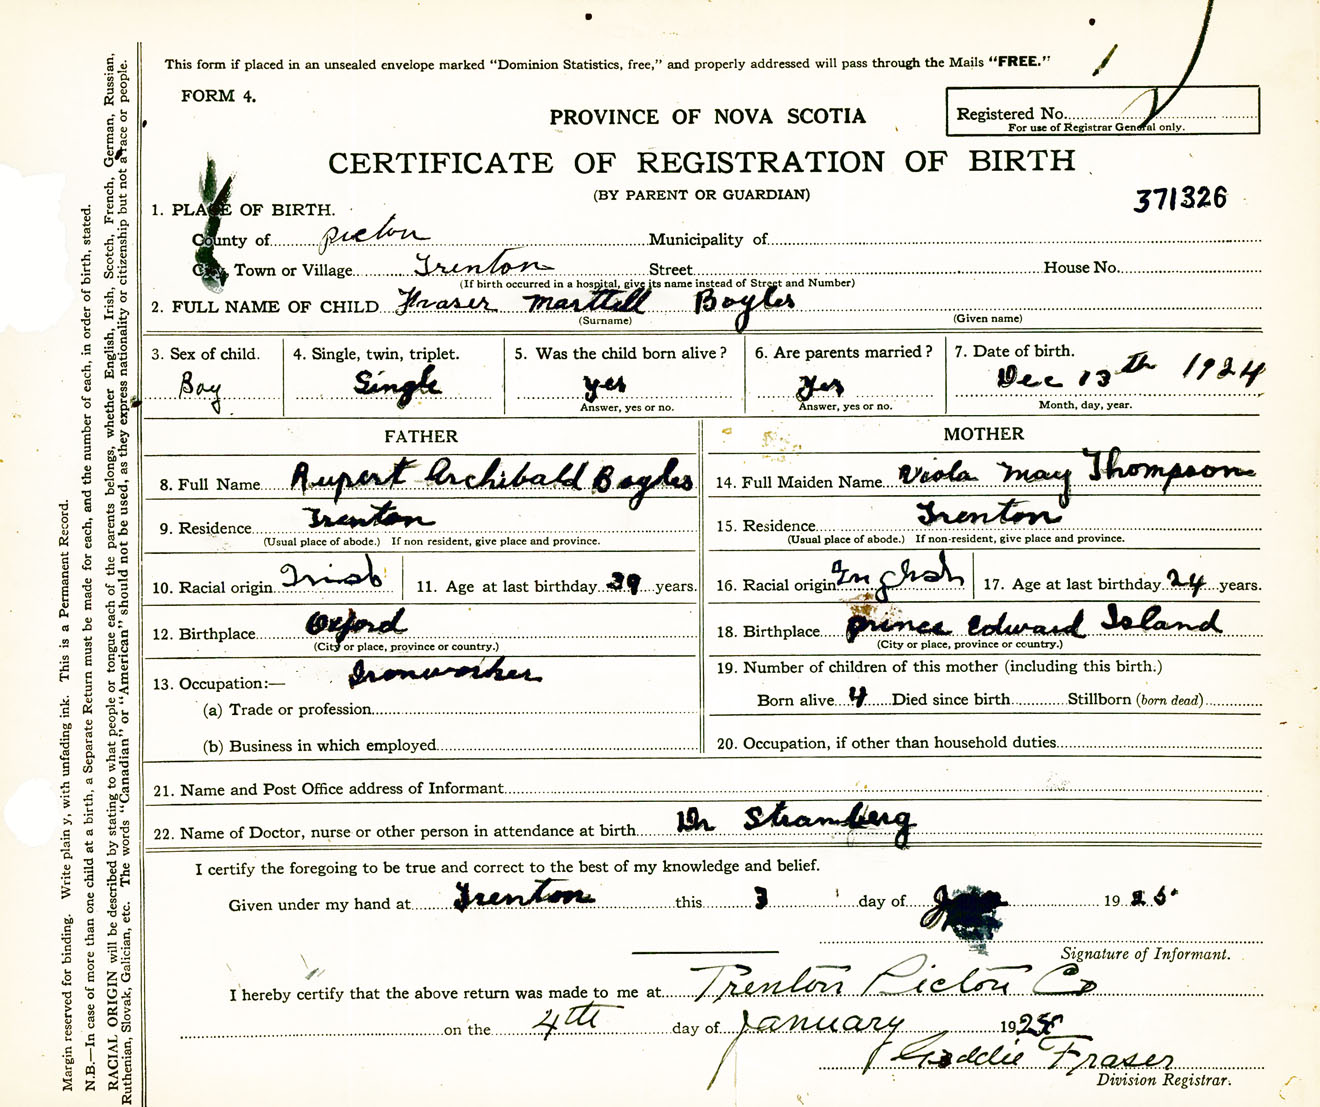 This form if placed in an unsealed envelope marked "Dominion Statistics, free," and properly addressed will pass through the Mails "FREE."
FORM 4.
PROVINCE OF NOVA SCOTIA
Registered No.
For use of Registrar General only.
CERTIFICATE OF REGISTRATION OF BIRTH
(BY PARENT OR GUARDIAN)
371326
1. PLACE OF BIRTH.
County of picton Municipality of
City, Town or Village Trenton Street House No.
(If birth occurred in a hospital, give its name instead of Street and Number)
2. FULL NAME OF CHILD Fraser Marttell Boyles
(Surname) (Given name)
3. Sex of child. 4. Single, twin, triplet. 5. Was the child born alive? 6. Are parents married? 7. Date of birth.
Boy Single yes Yes Dec 13th 1924
Answer, yes or no. Answer, yes or no. Month, day, year.
FATHER MOTHER
8. Full Name Rupert Archibald Boyles 14. Full Maiden Name Viola May Thompson
9. Residence Trenton 15. Residence Trenton
(Usual place of abode.) If non resident, give place and province. (Usual place of abode.) If non-resident, give place and province.
10. Racial origin Irish 11. Age at last birthday 39 years. 16. Racial origin Inglish 17. Age at last birthday 24 years.
12. Birthplace Oxford 18. Birthplace prince Edward Island
(City or place, province or country.) (City or place, province or country.)
13. Occupation:— Ironworker 19. Number of children of this mother (including this birth.)
(a) Trade or profession Born alive 4 Died since birth Stillborn (born dead)
(b) Business in which employed 20. Occupation, if other than household duties
21. Name and Post Office address of Informant
22. Name of Doctor, nurse or other person in attendance at birth Dr Stramberg
I certify the foregoing to be true and correct to the best of my knowledge and belief.
Given under my hand at Trenton this 3 day of 1925
Signature of Informant.
I hereby certify that the above return was made to me at Trenton Picton Co
on the 4th day of January 1925
Goddie Fraser
Division Registrar.
Margin reserved for binding. Write plainy, with unfading ink. This is a Permanent Record.
N.B.—In case of more than one child at a birth, a Separate Return must be made for each, and the number of each, in order of birth, stated.
RACIAL ORIGIN will be described by stating to what people or tongue each of the parents belongs, whether English, Irish, Scotch, French, German, Russian,
Ruthenian, Slovak, Galician, etc. The words "Canadian" or "American" should not be used, as they express nationality or citizenship but not a race or people.